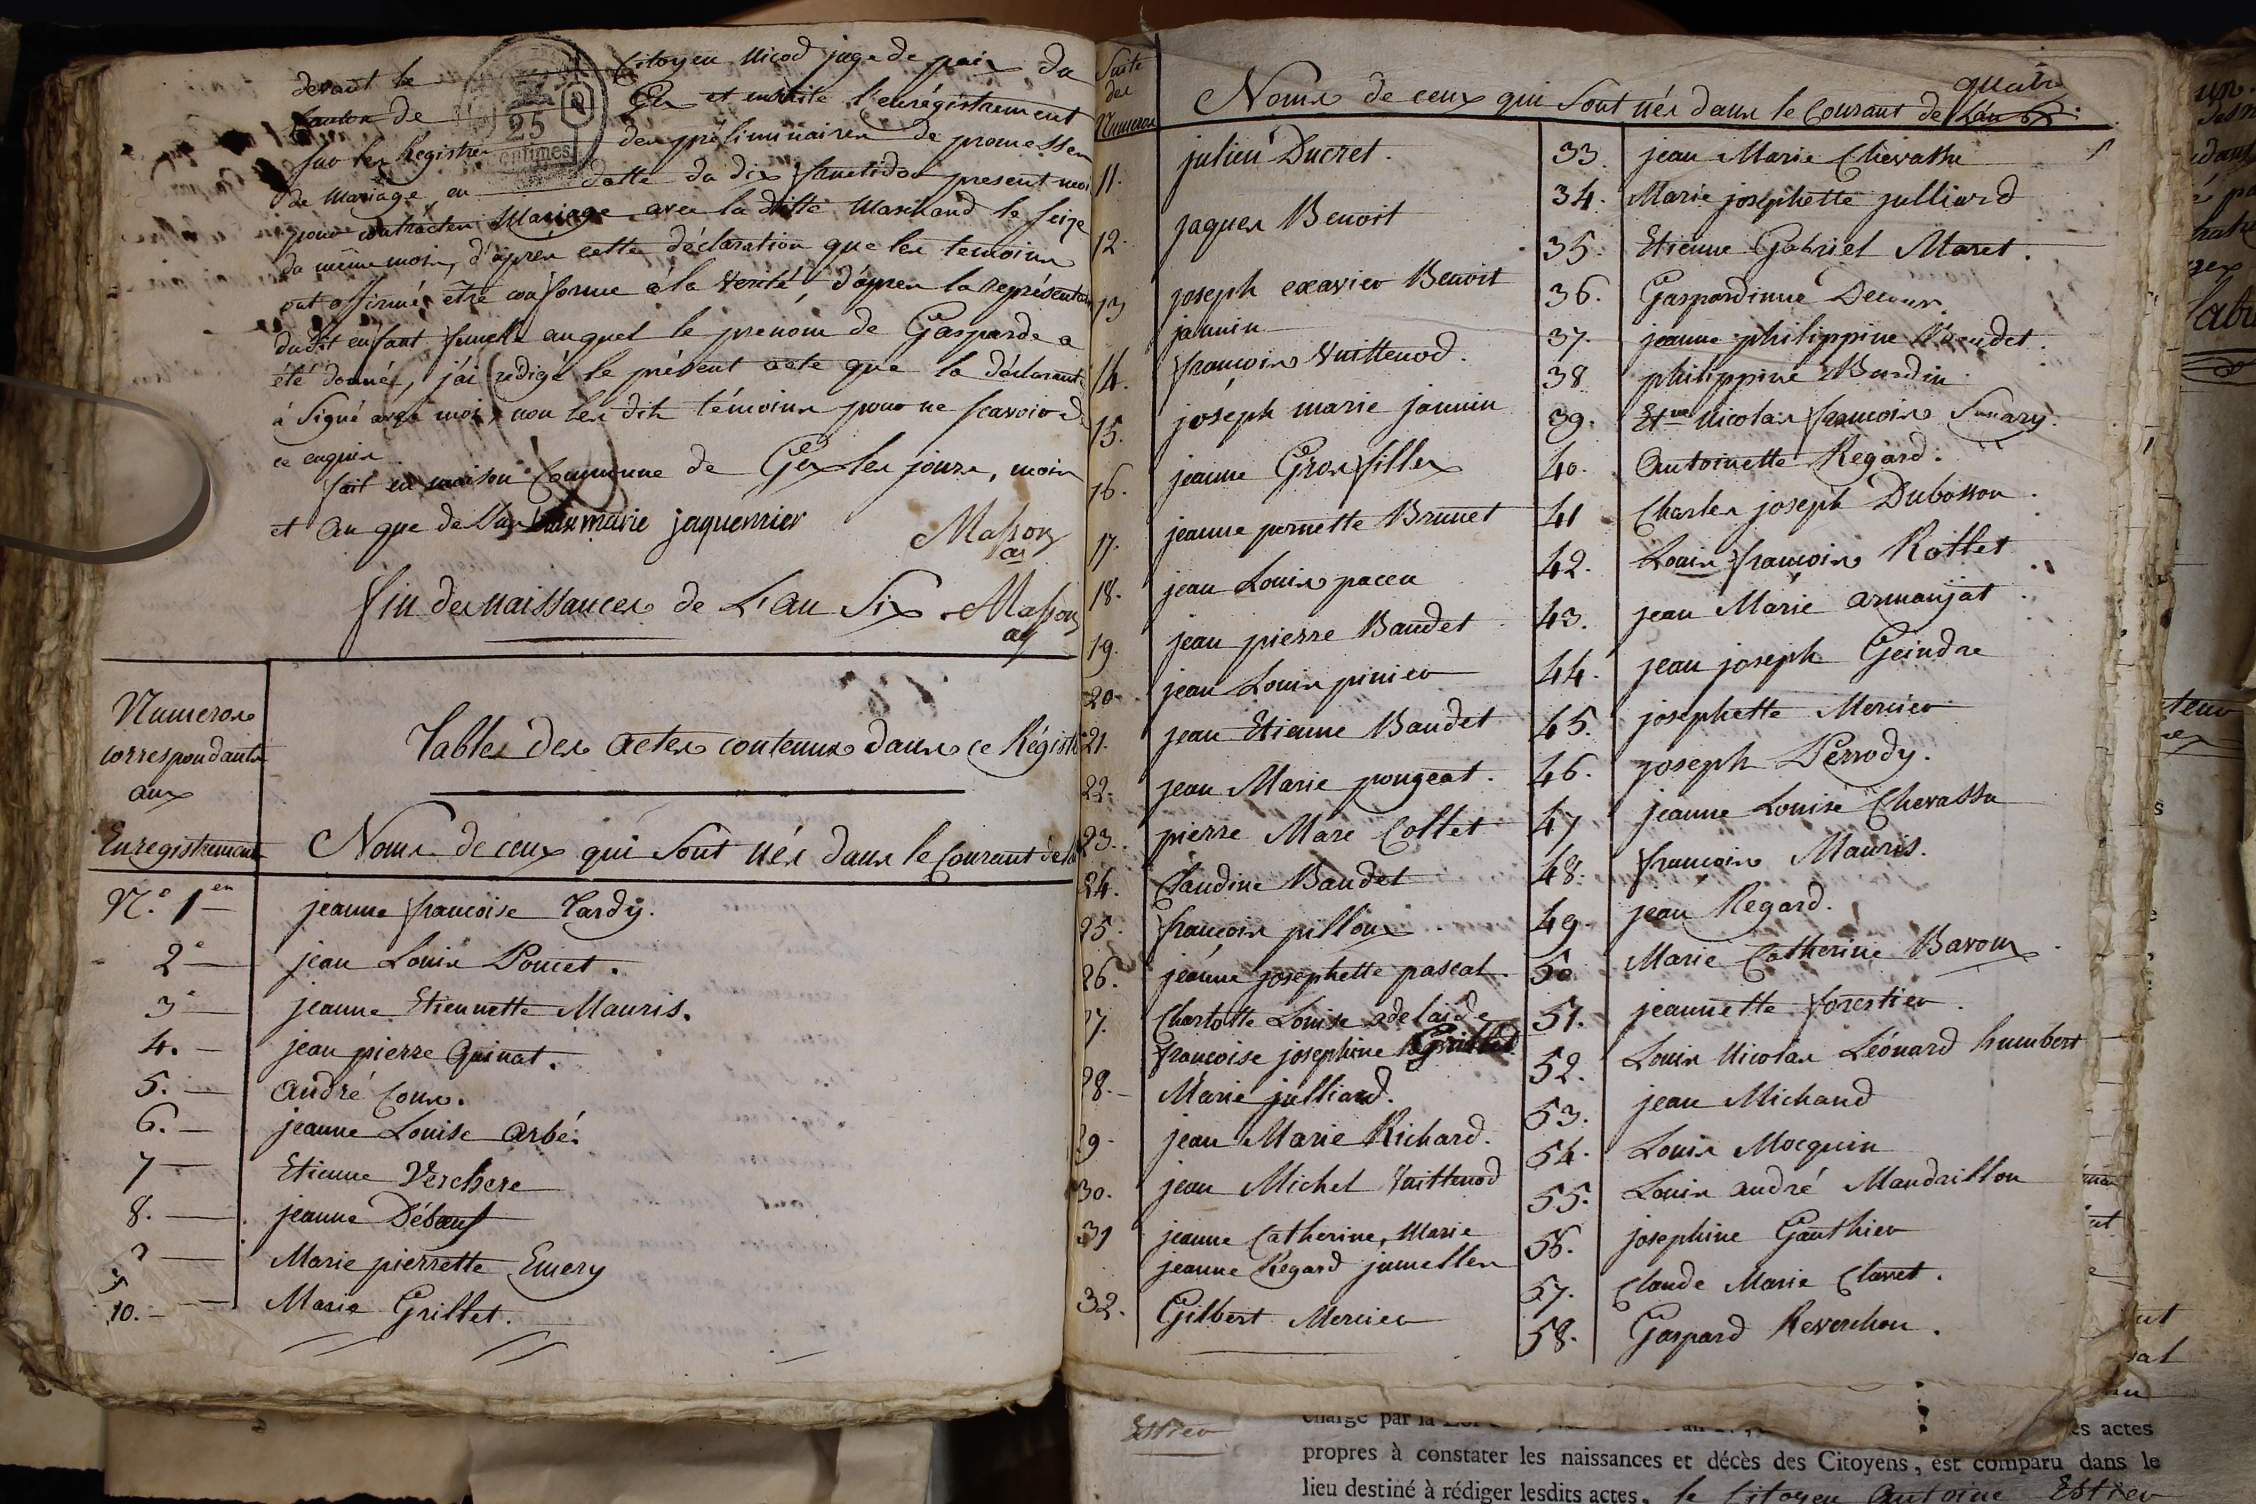 devant le Citoyen Nicod juge de paix du
Canton de Gex et ensuite l'enrégistrement
25
centimes
sur les Registres des préliminaires de promesses
de Mariage, en datte du dix fructidor present mois
pour contracter Mariage avec la ditte Marchand le seize
du même mois, d'après cette déclaration que les temoins
ont affirmé être conforme à la Verité, d'après la représentation
dudit enfant femelle auquel le prenom de Gasparde a
été donné, j'ai redigé le présent acte que la déclarante
à Signé avec moi, non les dits témoins pour ne scavoir de
ce enquis
fait en maison Commune de Gex les jours, mois
et an que dessus jaquemier
Masson
ag
fin des naissances de L'an Six. Masson
ag
Numeros
correspondants
aux
Enregistrements
Tables des actes contenus dans ce Régistre
Noms de ceux qui Sont nés dans le Courant de
N.o 1er jeanne francoise Tardy.
2e jean Louis Poncet.
3e jeanne Etiennette Mauris.
4. jean pierre Quinat.
5. andré Cour.
6. jeanne Louise arbé.
7 Etienne Verchere
8. jeanne Débouf
9 Marie pierrette Emery
10. Marie Grillet.
Suite
des
Numeros
Noms de ceux qui Sont nés dans le Courant de L'an 6.
quatre
11. julien Ducret.
12. jaques Benoit
13 joseph exavier Benoit
jannin
14. francois Vuittenod.
15. joseph marie jannin
16. jeanne Grosfilley
17. jeanne pernette Brunet
18. jean Louis paccu
19. jean pierre Baudet
20 jean Louis pinier
21. jean Etienne Baudet
22. jean Marie pougeat.
23. pierre Marc Collet
24. Claudine Baudet
25. francois pilloux
26. jeanne josephette pascal.
27. Charlotte Louise adelaide
francoise josephine
28. Marie julliard.
29 jean Marie Richard.
30. jean Michel Vuittenod
31 jeanne Catherine, Marie
jeanne Regard jumelles
32. Gilbert Mercier
33. jean Marie Chevassu
34. Marie josephette julliard
35. Etienne Gabriel Maret.
36. Gaspardinne Decour.
37. jeanne philippine
38 philippine Bardin.
39. Etne Nicolas francois
40. antoinette Regard.
41 Charles joseph Dubosson.
42. Louis francois Rollet
43. jean Marie armanjat
44. jean joseph Geindre
45. josephette Mercier
46. joseph Perrody.
47 jeanne Louise Chevassu
48. francois Mauris.
49. jean Regard.
50 Marie Catherine Bavoux
51. jeannette forestier.
52. Louis Nicolas Léonard humbert
53. jean Michaud
54. Louis Mocquin
55. Louis andré Mandrillon
56. josephine Gauthier
57. Claude Marie Clavet.
58. Gaspard Reverchon.
Estier
chargé par la
es actes
propres à constater les naissances et décès des Citoyens, est comparu dans le
lieu destiné à rédiger lesdits actes, le Citoyen Antoine Estier